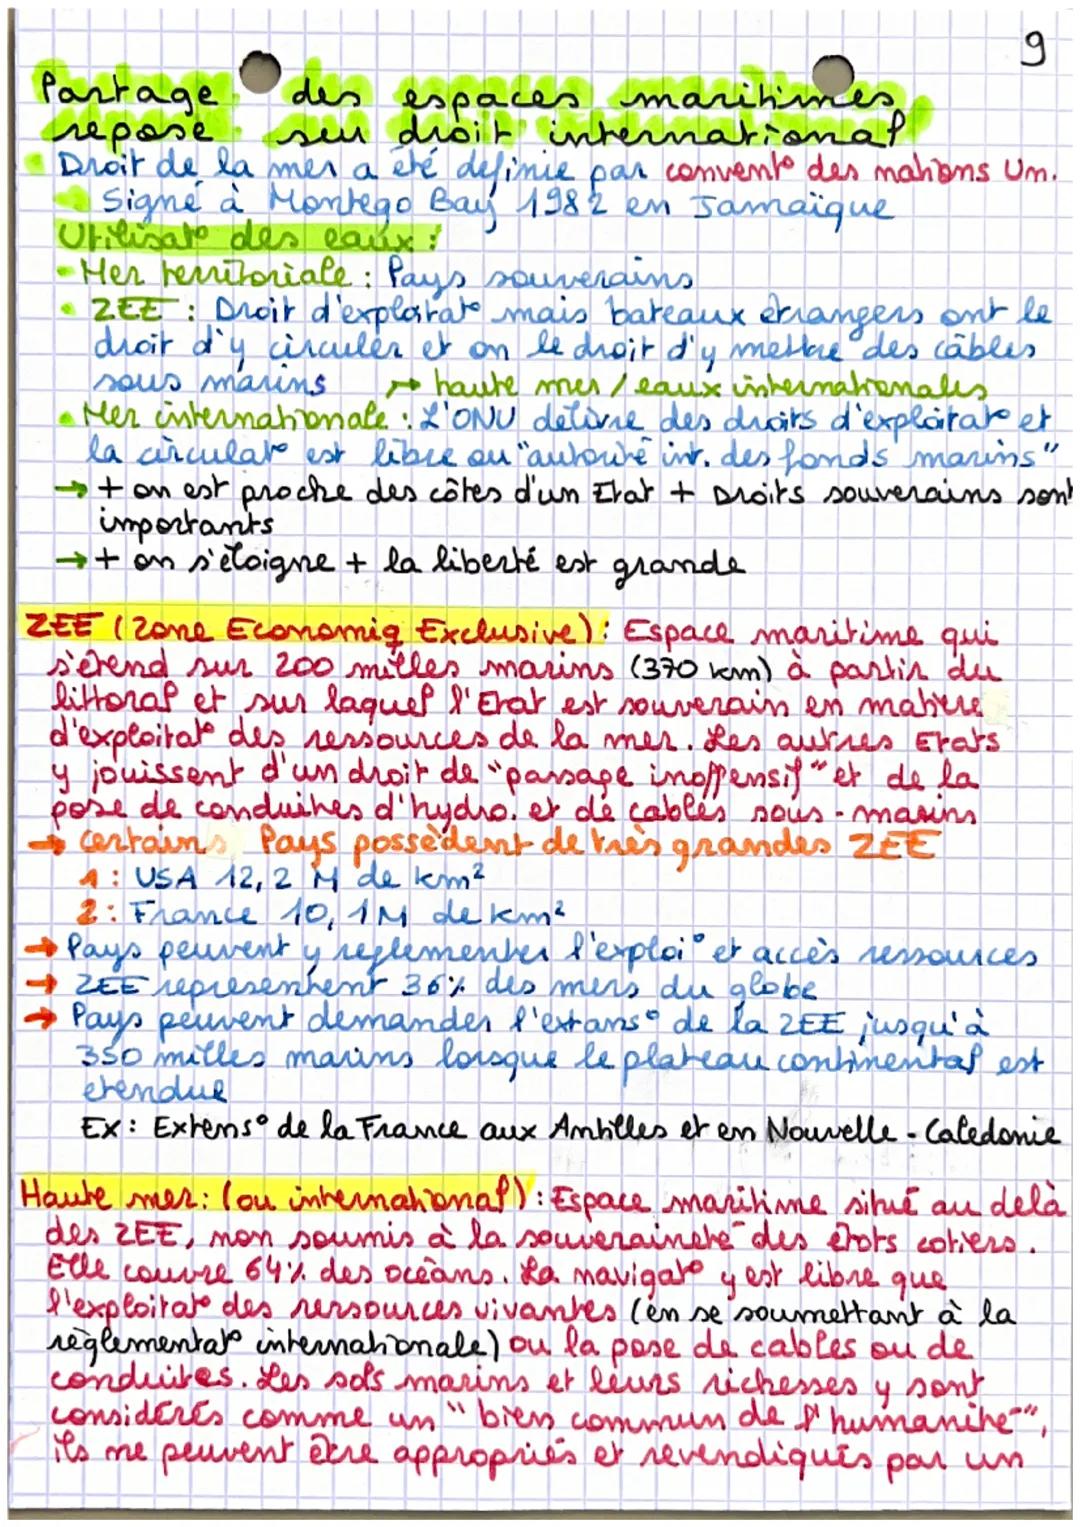 9
Partage des espaces maritimes
repose sur droit international
Droit de la mer a été définie par convent° des nations Un.
Signé à Montego Bay 1982 en Jamaïque
Utilisat° des eaux :
- Mer territoriale : Pays souverains
• ZEE : Droit d'exploitat° mais bateaux étrangers ont le
droit d'y circuler et on le droit d'y mettre des câbles
sous marins → haute mer / eaux internationales
• Mer internationale : L'ONU délivre des droits d'exploitat° et
la circulat° est libre ou "autorité int. des fonds marins"
→ + on est proche des côtes d'un Etat + Droits souverains sont
importants
→ + on s'éloigne + la liberté est grande
ZEE (Zone Economiq Exclusive) : Espace maritime qui
s'étend sur 200 milles marins (370 km) à partir du
littoral et sur laquel l'Etat est souverain en matière
d'exploitat° des ressources de la mer. Les autres Etats
y jouissent d'un droit de "passage inoffensif" et de la
pose de conduites d'hydro. et de cables sous-marins
→ certains Pays possèdent de très grandes ZEE
1 : USA 12,2 M de km²
2 : France 10,1M de km²
→ Pays peuvent y reglementer l'exploi° et accès ressources
→ ZEE representent 36% des mers du globe
→ Pays peuvent demander l'extans° de la ZEE jusqu'à
350 milles marins lorsque le plateau continental est
etendue
Ex : Extens° de la France aux Antilles et en Nouvelle-Caledonie
Haute mer : (ou international) : Espace maritime situé au delà
des ZEE, non soumis à la souveraineté des états cotiers.
Elle couvre 64% des océans. La navigat° y est libre que
l'exploitat° des ressources vivantes (en se soumettant à la
règlementat° internationale) ou la pose de cables ou de
conduites. Les sols marins et leurs richesses y sont
considérés comme un "bien commun de l'humanité",
ils ne peuvent être appropriés et revendiqués par un